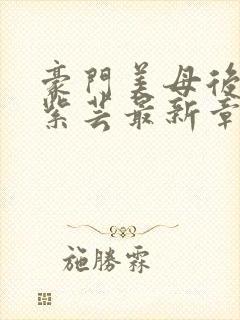 豪門美母後
紫芸最新章
施勝霖